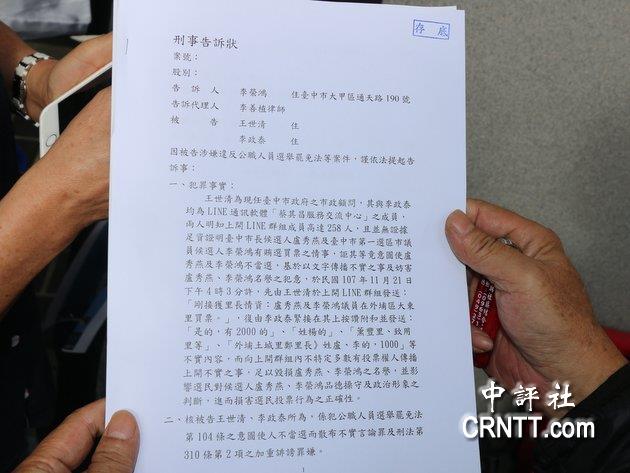 存底
刑事告訴狀
案號：
股別：
告訴人　李榮鴻　住臺中市大甲區通天路190號
告訴代理人　李善植律師
被告　王世清　住
李政泰　住
因被告涉嫌違反公職人員選舉罷免法等案件，謹依法提起告
訴事：
一、犯罪事實：
王世清為現任臺中市政府之市政顧問，其與李政泰
均為LINE通訊軟體「蔡其昌服務交流中心」之成員，
兩人明知上開LINE群組成員高達258人，且並無證據
足資證明臺中市長候選人盧秀燕及臺中市第一選區市議
員候選人李榮鴻有賄選買票之情事，詎其等竟意圖使盧
秀燕及李榮鴻不當選，基於以文字傳播不實之事及妨害
盧秀燕、李榮鴻名譽之犯意，於民國107年11月21日
下午4時3分許，先由王世清於上開LINE群組發送：
「剛接獲里長情資：盧秀燕及李榮鴻議員在外埔區大東
里買票。」，後由李政泰緊接在其上按讚附和並發送：
「是的，有2000的」、「姓楊的」、「薰豐里、致用
里等」、「外埔土城里鄰里長》姓盧、李的，1000」等
不實內容，而向上開群組內不特定多數有投票權人傳播
上開不實之事，足以毀損盧秀燕、李榮鴻之名譽，並影
響選民對候選人盧秀燕、李榮鴻品德操守及政治形象之
判斷，進而損害選民投票行為之正確性。
二、核被告王世清、李政泰所為，係犯公職人員選舉罷免法
第104條之意圖使人不當選而散布不實言論罪及刑法第
310條第2項之加重誹謗罪嫌。
1
中評社
CRNTT.com